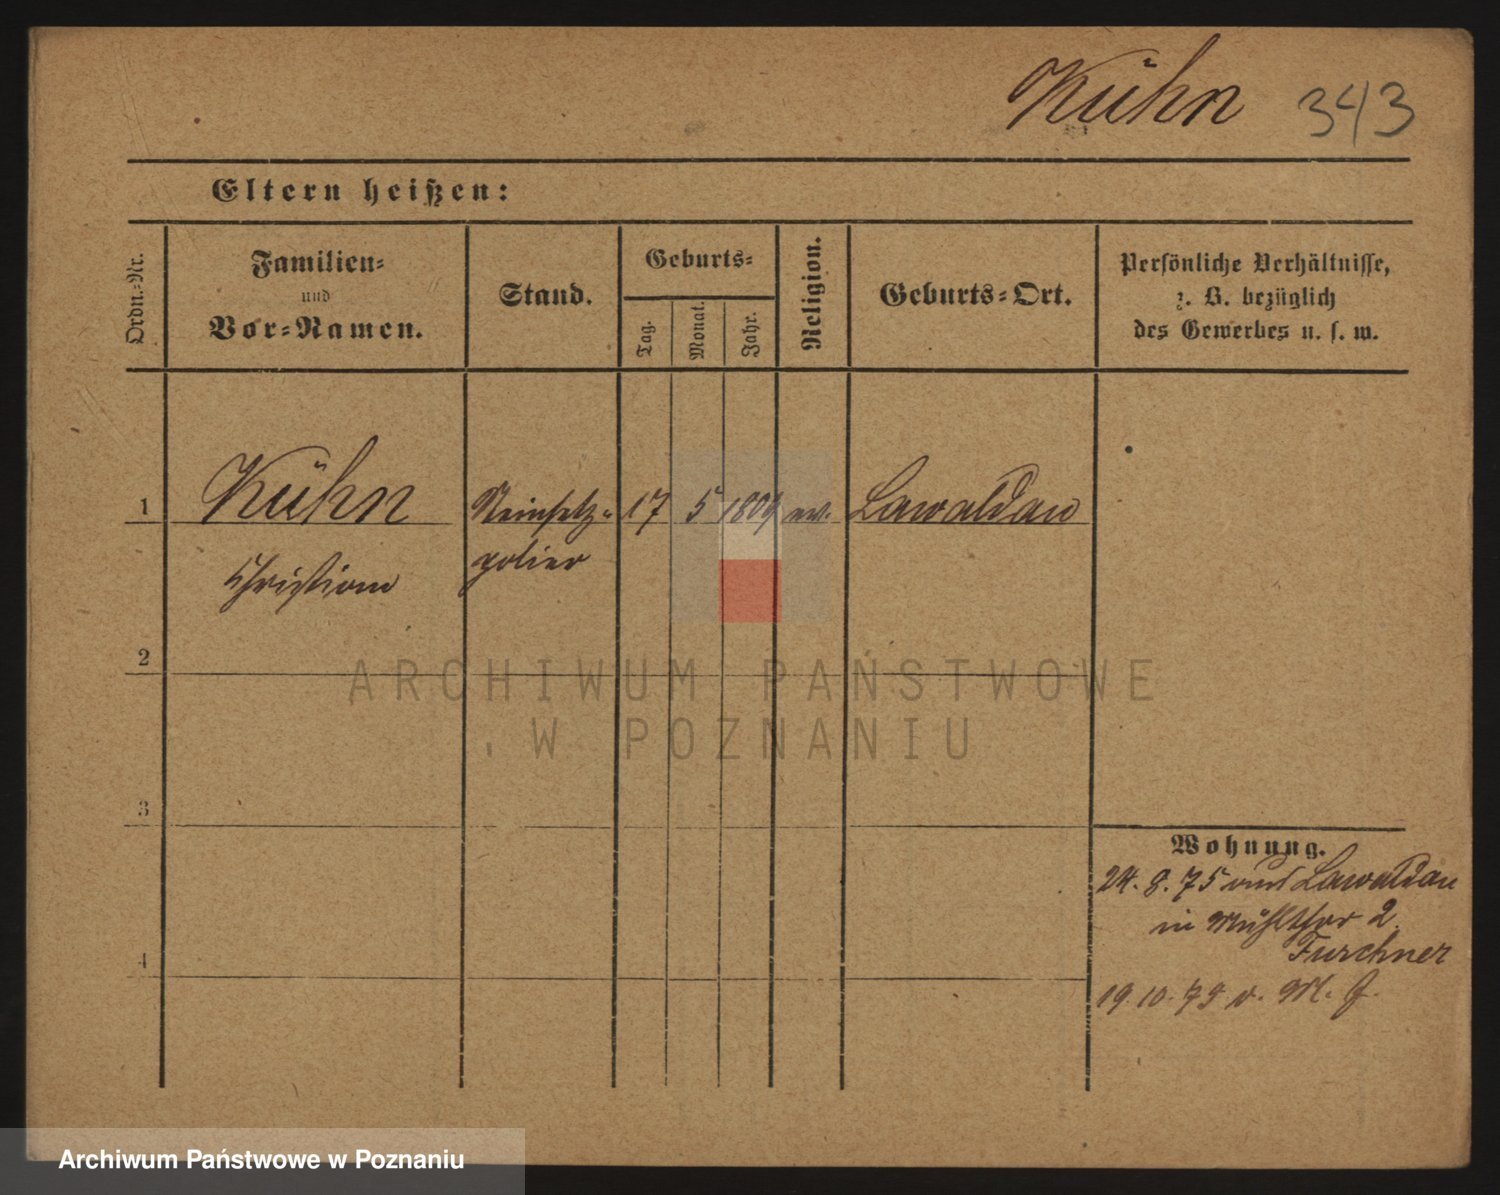 Kühn 343
Eltern heißen:
Ordn.-Nr.
Familien-
und
Vor-Namen.
Stand.
Geburts-
Tag.
Monat.
Jahr.
Religion.
Geburts-Ort.
Persönliche Verhältnisse,
z. B. bezüglich
des Gewerbes u. s. w.
1 Kühn Steinsetz- 17 5 1809 ev. Lawaldau
Christian polier
2
3
4
Wohnung.
24. 8. 75 aus Lawaldau
in Mühlthor 2.
Furchner
19. 10. 75 v. M. G.
ARCHIWUM PAŃSTWOWE
W POZNANIU
Archiwum Państwowe w Poznaniu